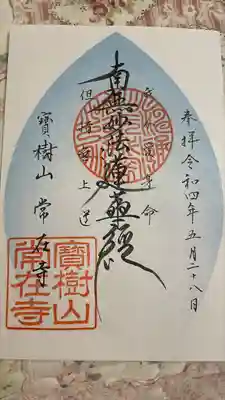 奉拝 令和四年五月二十八日
我不愛身命
南無妙法蓮華経
但惜無上道
寶樹山 常在寺
寶樹山
常在寺